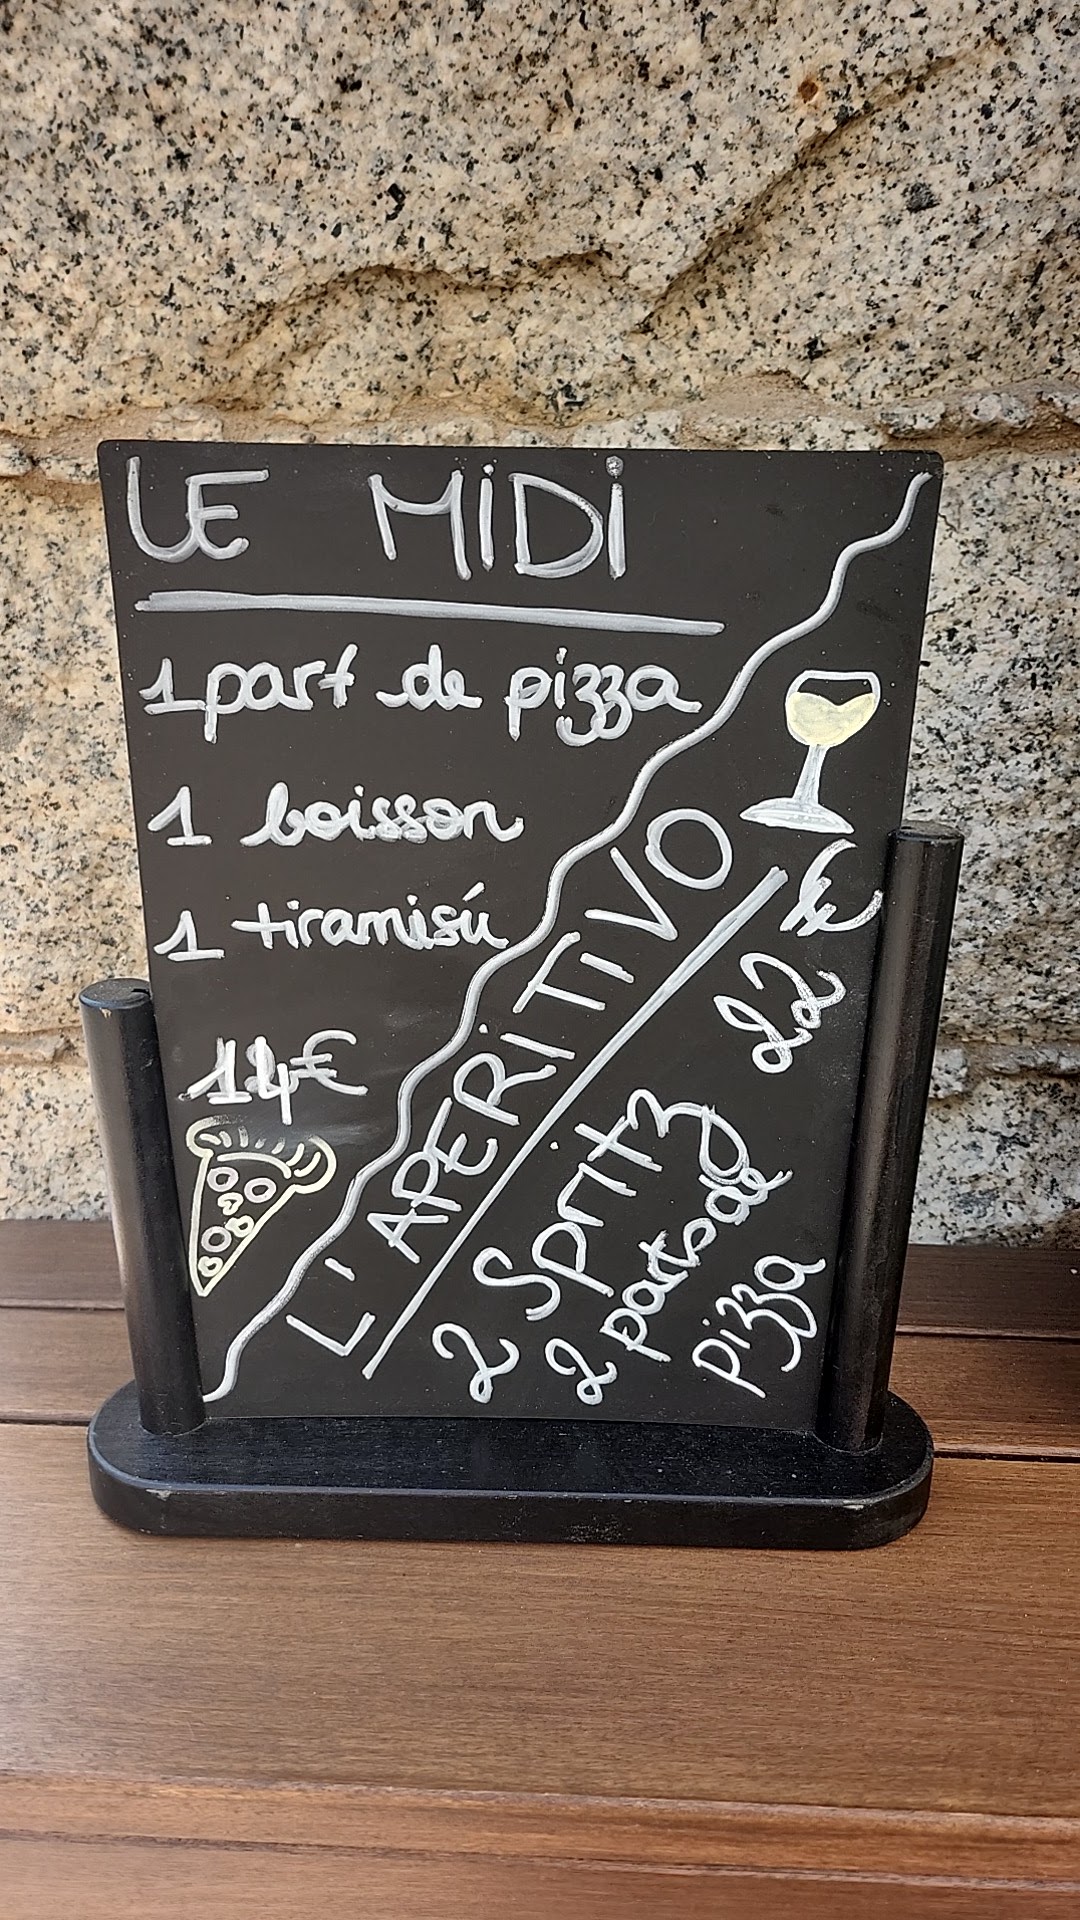 LE MIDI
1 part de pizza
1 boisson
1 tiramisú
14€
L'APERITIVO
2 Spritz
2 parts de
pizza
22€